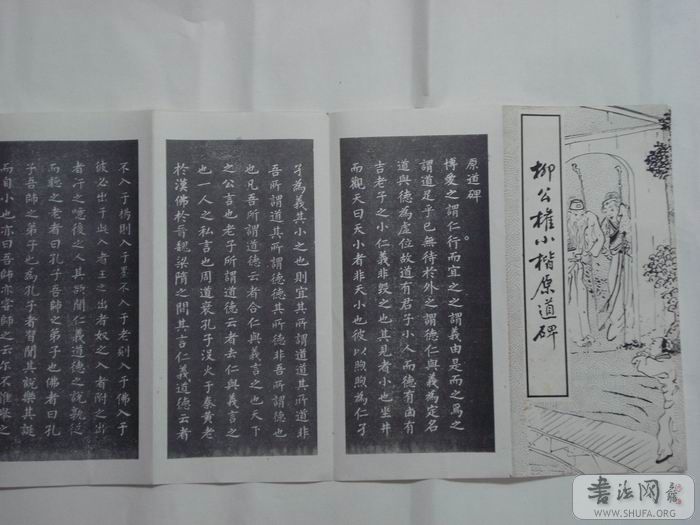 柳公權小楷原道碑
原道碑
博愛之謂仁行而宜之之謂義由是而之焉之
謂道足乎已無待於外之謂德仁與義為定名
道與德為虛位故道有君子小人而德有凶有
吉老子之小仁義非毀之也其見者小也坐井
而觀天曰天小者非天小也彼以煦煦為仁孑
孑為義其小之也則宜其所謂道道其所道非
吾所謂道其所謂德德其所德非吾所謂德也
也凡吾所謂道德云者合仁與義言之也天下
之公言也老子所謂道德云者去仁與義言之
也一人之私言也周道衰孔子沒火于秦黄老
於漢佛於晉魏梁隋之間其言仁義道德云者
不入于楊則入于墨不入于老則入于佛入于
彼必出于此入者主之出者奴之入者附之出
者汙之噫後之人其欲聞仁義道德之說孰從
而聽之老者曰孔子吾師之弟子也佛者曰孔
子吾師之弟子也為孔子者習聞其說樂其誕
而自小也亦曰吾師亦嘗師之云尔不惟舉之
書法网
WWW.SHUFA.ORG